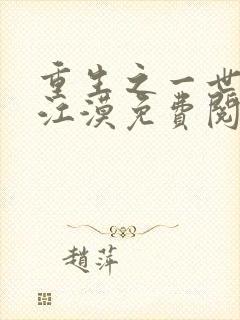 重生之一世
江漠免費閱
趙萍